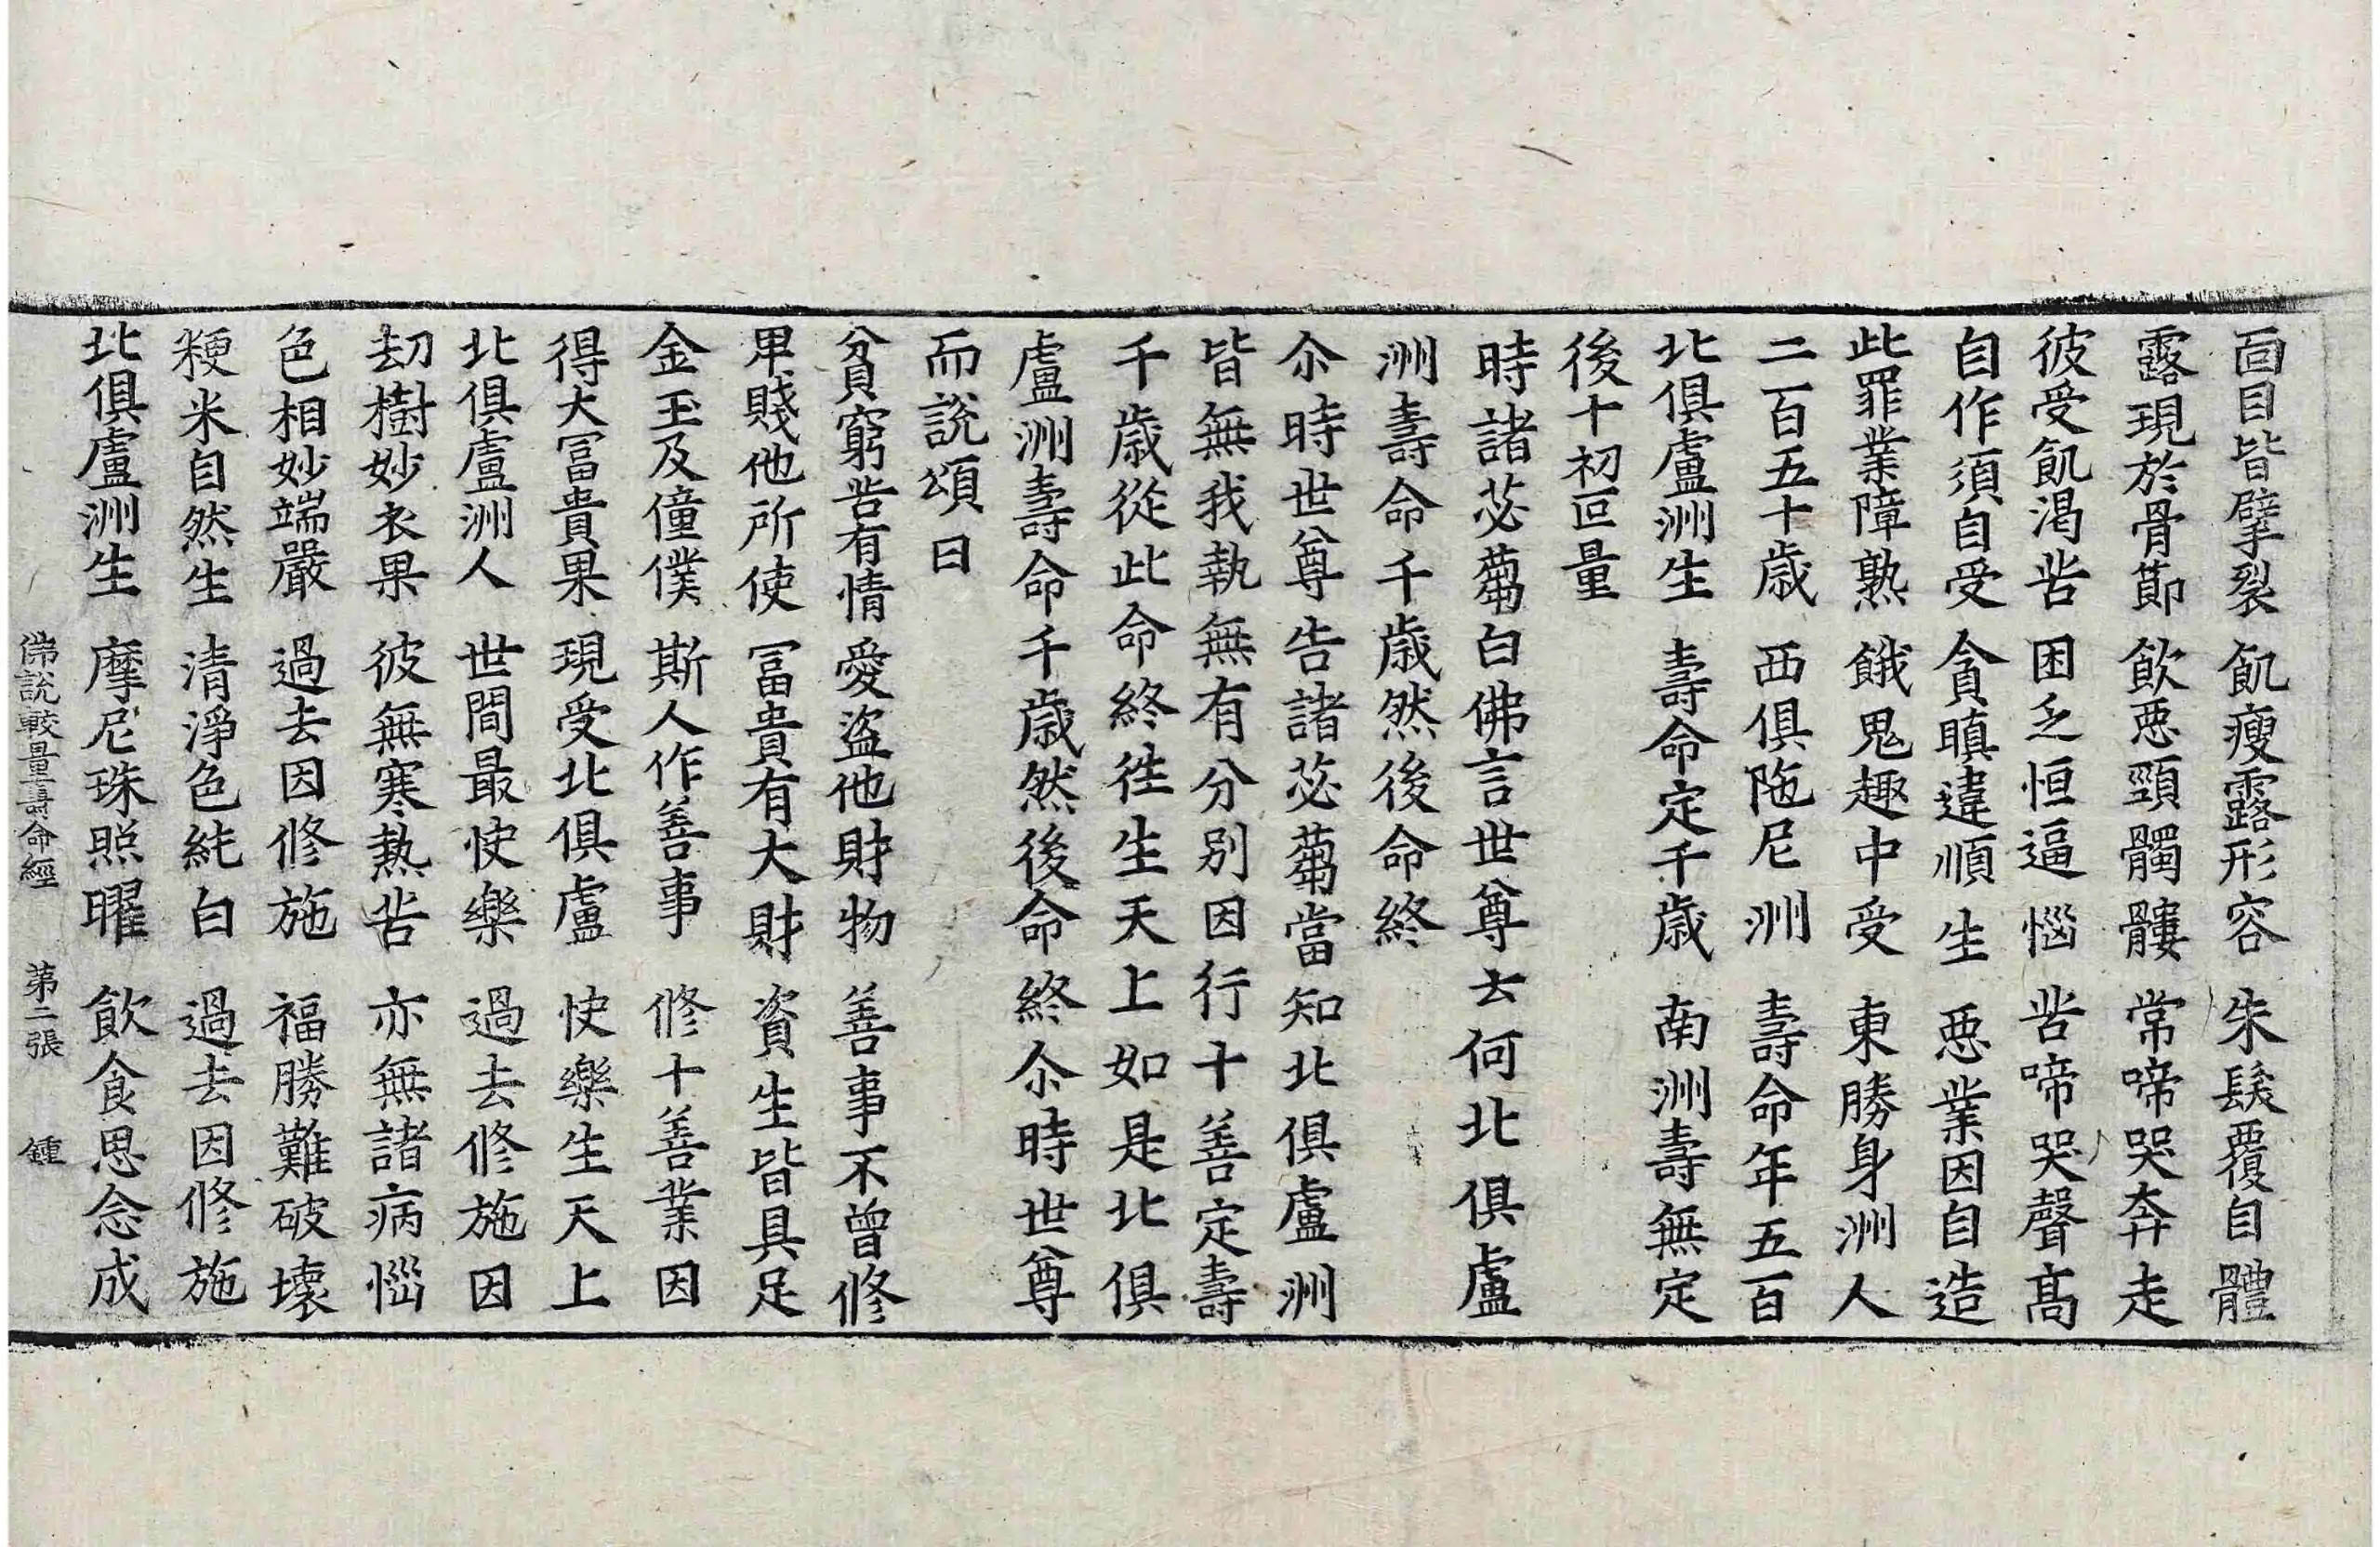 面目皆擘裂 飢瘦露形容 朱髮覆自體
露現於骨節 飲惡頸髑髏 常啼哭奔走
彼受飢渴苦 困乏恒逼惱 苦啼哭聲高
自作須自受 貪瞋違順生 惡業因自造
此罪業障熟 餓鬼趣中受 東勝身洲人
二百五十歲 西俱陁尼洲 壽命年五百
北俱盧洲生 壽命定千歲 南洲壽無定
後十初叵量
時諸苾蒭白佛言世尊云何北俱盧
洲壽命千歲然後命終
尒時世尊告諸苾蒭當知北俱盧洲
皆無我執無有分別因行十善定壽
千歲從此命終徃生天上如是北俱
盧洲壽命千歲然後命終尒時世尊
而說頌曰
貧窮苦有情 愛盜他財物 善事不曾修
卑賤他所使 冨貴有大財 資生皆具足
金玉及僮僕 斯人作善事 修十善業因
得大冨貴果 現受北俱盧 快樂生天上
北俱盧洲人 世間最快樂 過去修施因
劫樹妙衣果 彼無寒熱苦 亦無諸病惱
色相妙端嚴 過去因修施 福勝難破壞
粳米自然生 清淨色純白 過去因修施
北俱盧洲生 摩尼珠照曜 飲食思念成
佛說較量壽命經 第二張 鍾